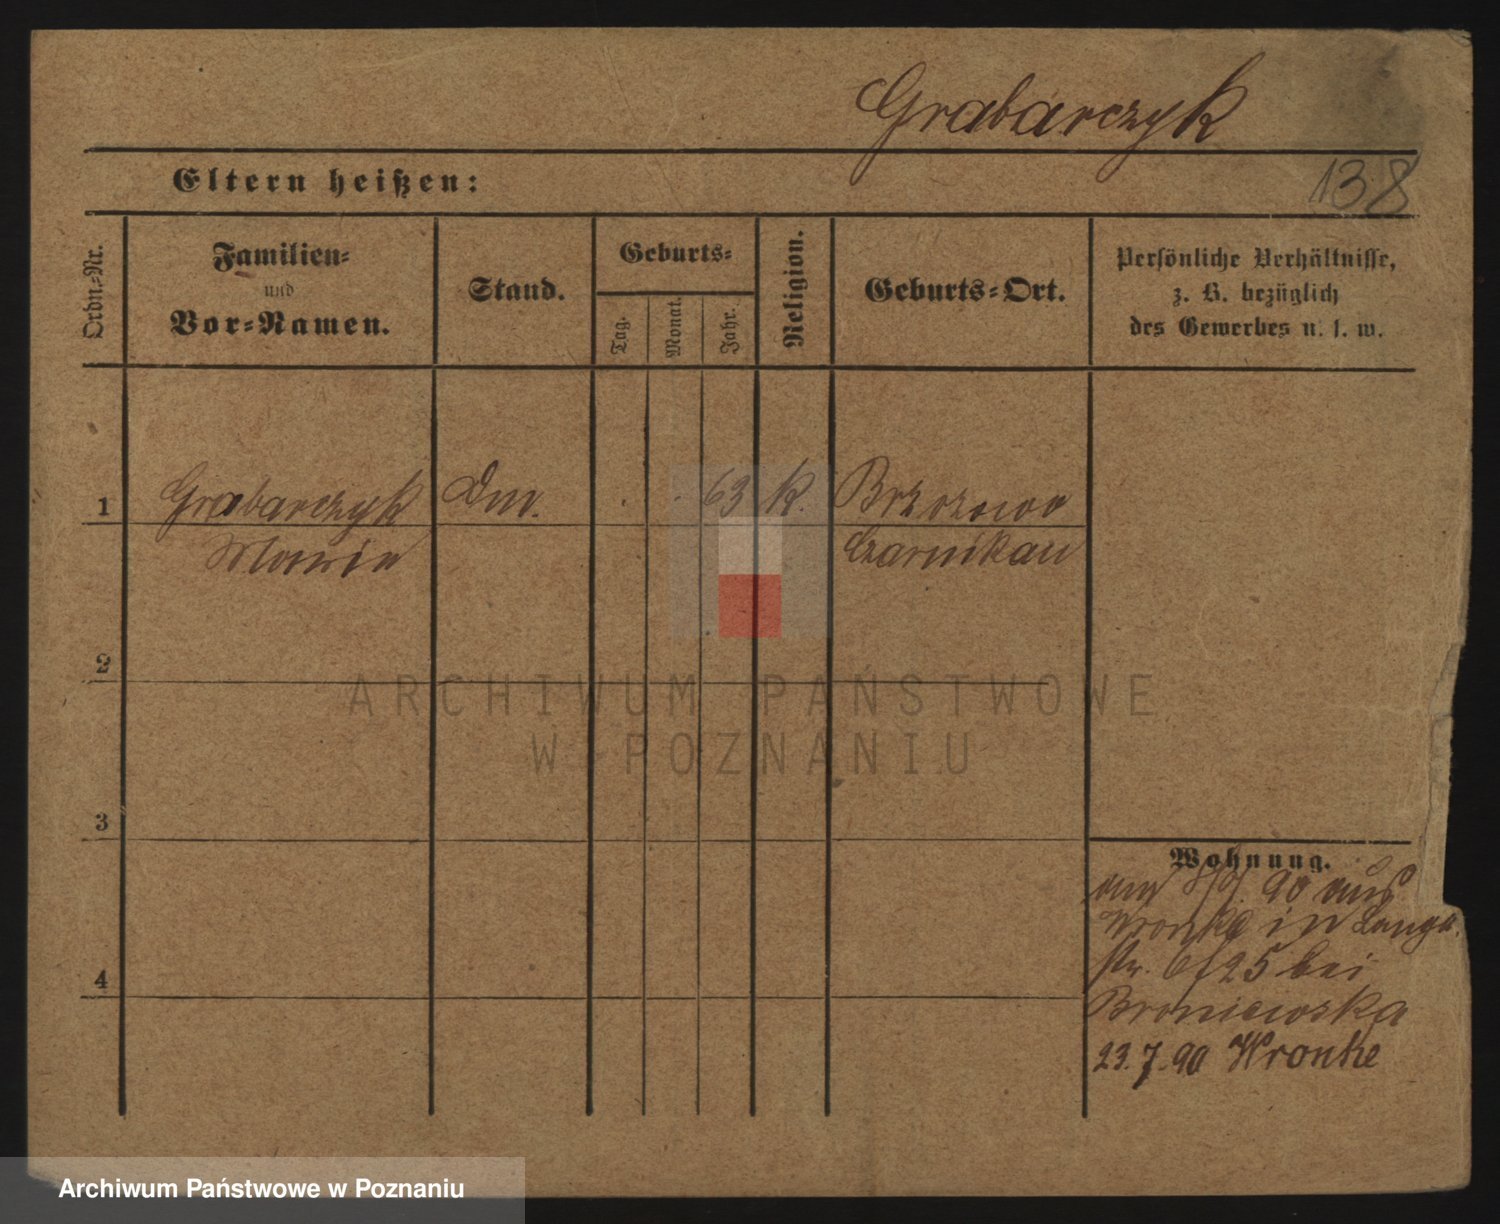 Grabarczyk
Eltern heißen:
138
Ordn.-Nr.
Familien-
und
Vor-Namen.
Stand.
Geburts-
Tag.
Monat.
Jahr.
Religion.
Geburts-Ort.
Persönliche Verhältnisse,
z. B. bezüglich
des Gewerbes u. s. w.
1
Grabarczyk
Dm.
63
k.
Brzozowo
Maria
Czarnikau
2
ARCHIWUM PAŃSTWOWE
W POZNANIU
3
Wohnung.
90 aus
Wronke in Lange
str. 25 bei
4
Broniewska
23.7.90 Wronke
Archiwum Państwowe w Poznaniu